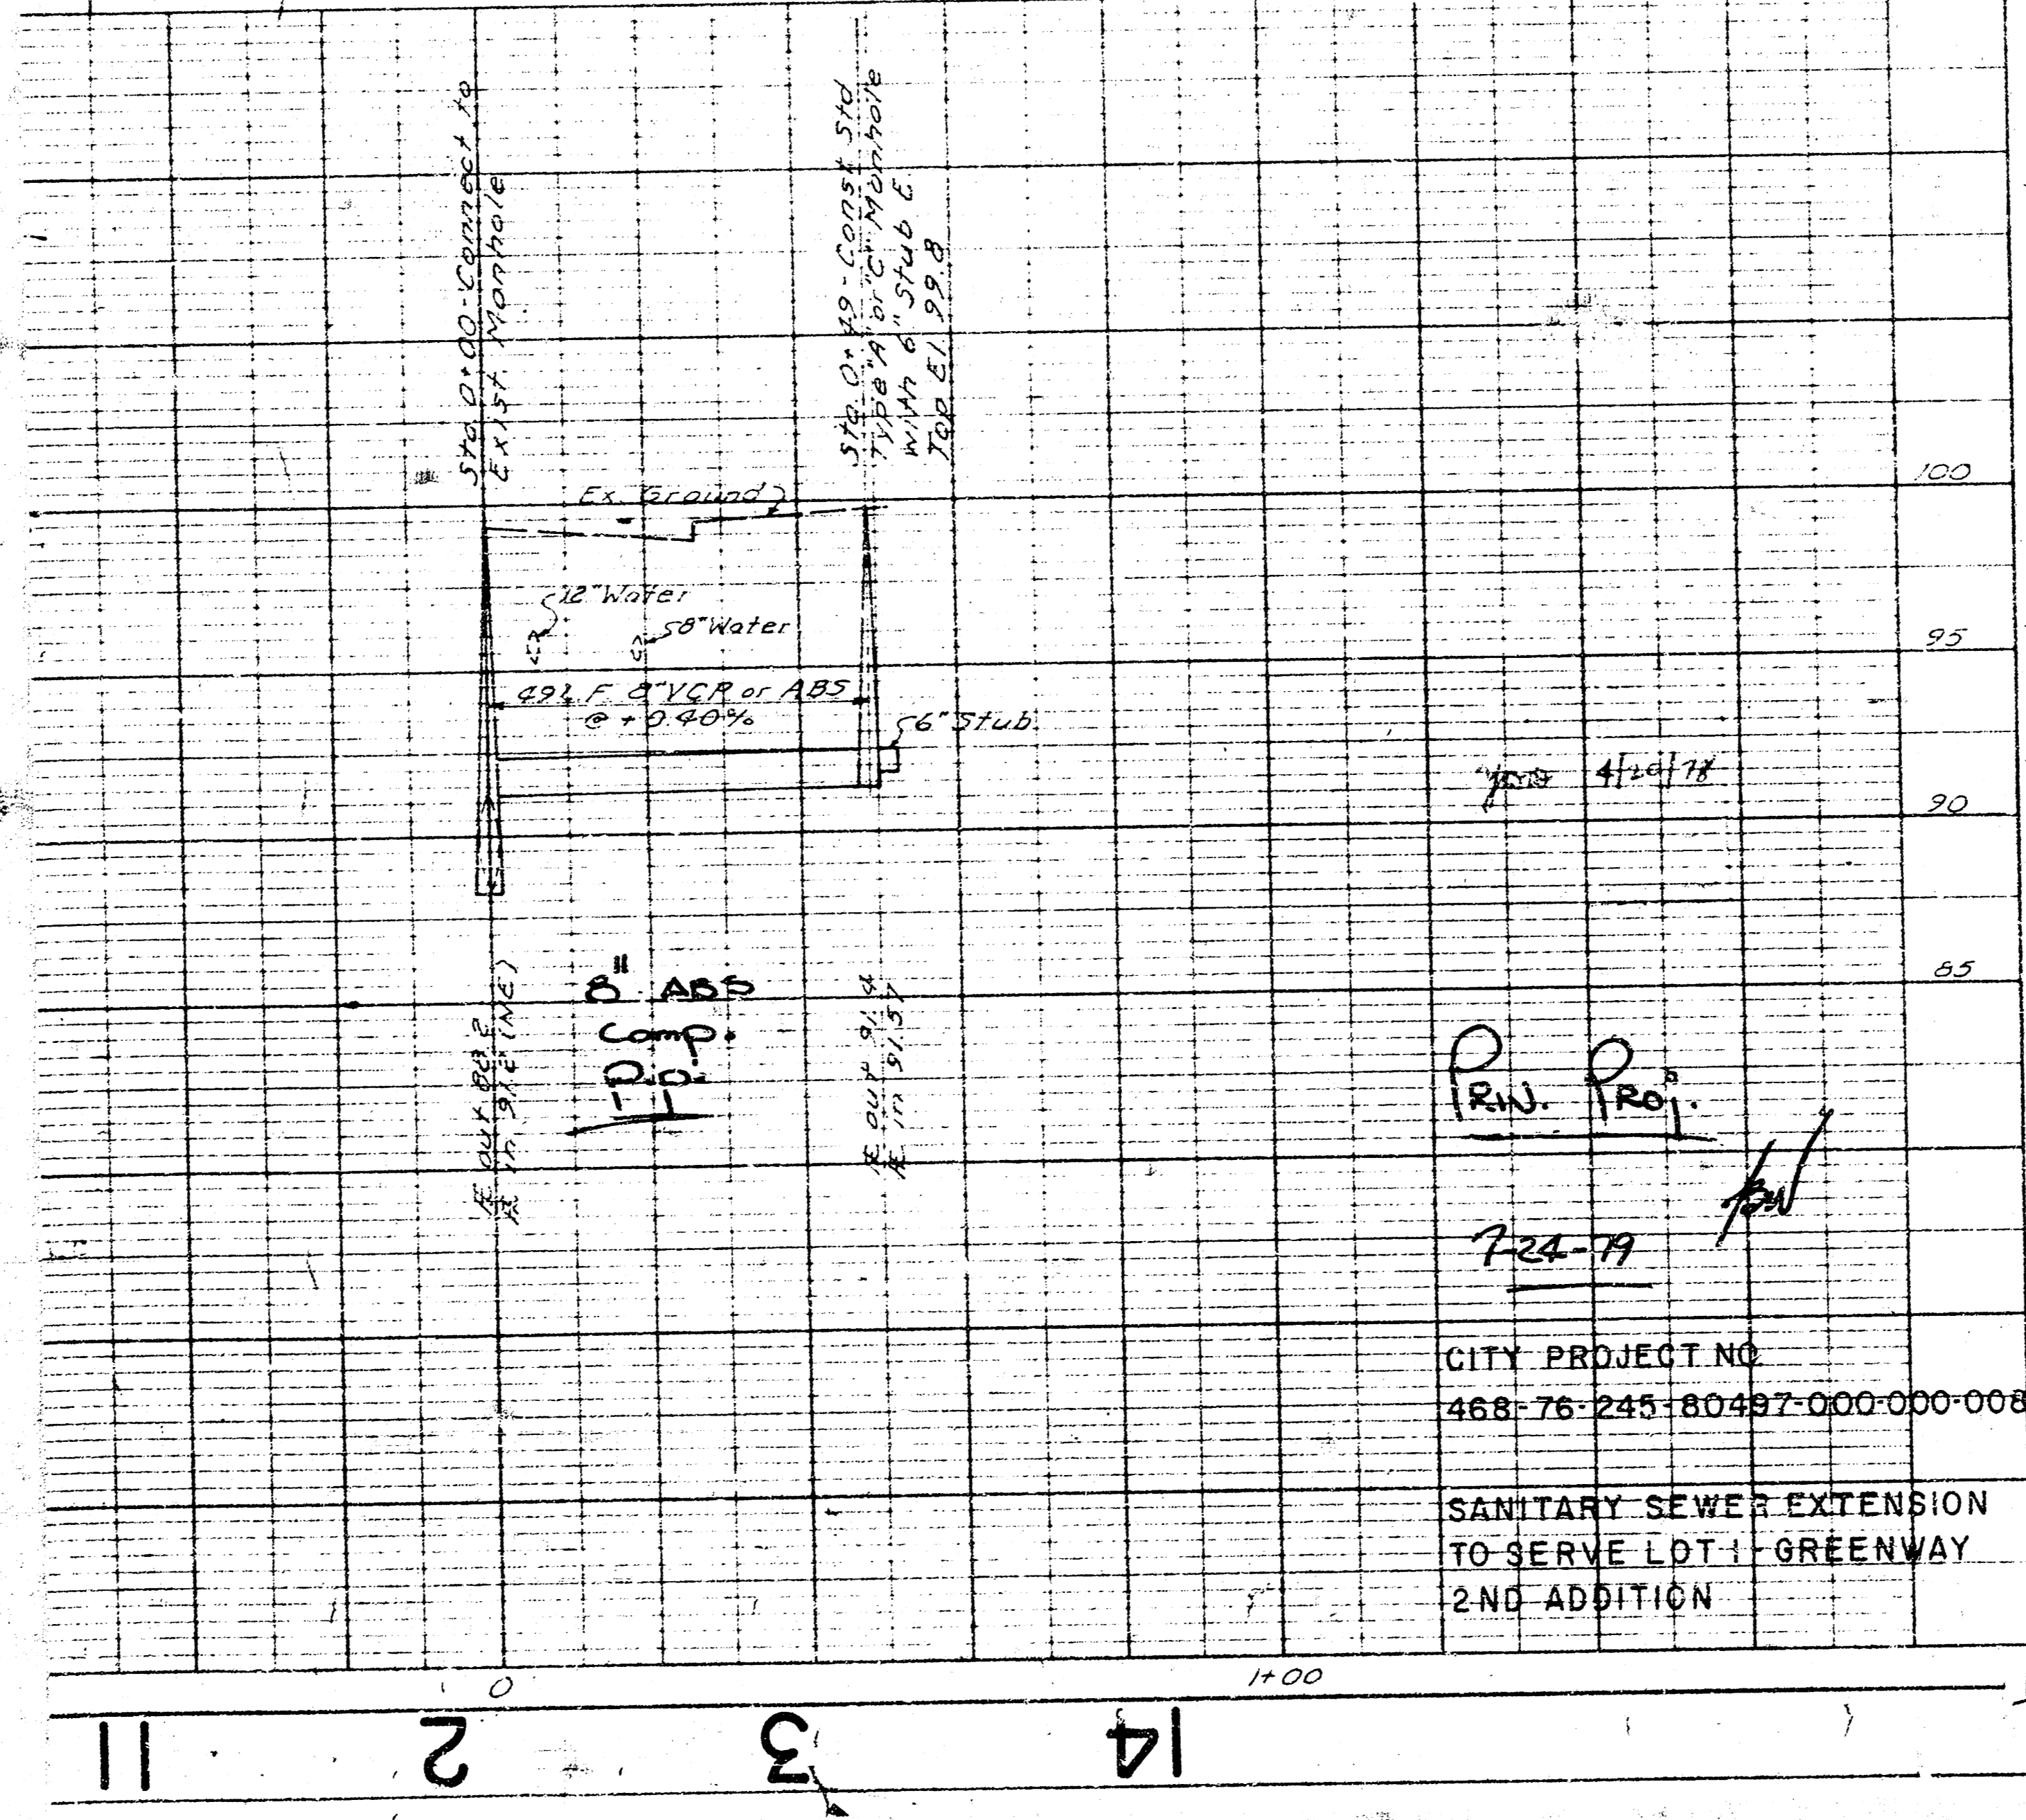 Sta. 0+00-Connect to
Exist. Manhole
Sta. 0+49-Const Std
Type "A" or "C" Manhole
with 6" Stub E.
Top El. 99.8
Ex. Ground
100
12" Water
8" Water
95
49 L.F. 8" VCP or ABS
@ +0.40%
6" Stub
4/20/78
90
85
8" ABS
Comp.
Pipe
Æ out 88.2
Æ in 91.2 (NE)
Æ out 91.4
Æ in 91.57
PRIV. PROJ.
7-24-79
CITY PROJECT NO
468-76-245-80497-000-000-008
SANITARY SEWER EXTENSION
TO SERVE LOT 1-GREENWAY
2ND ADDITION
0
1+00
11
2
3
14